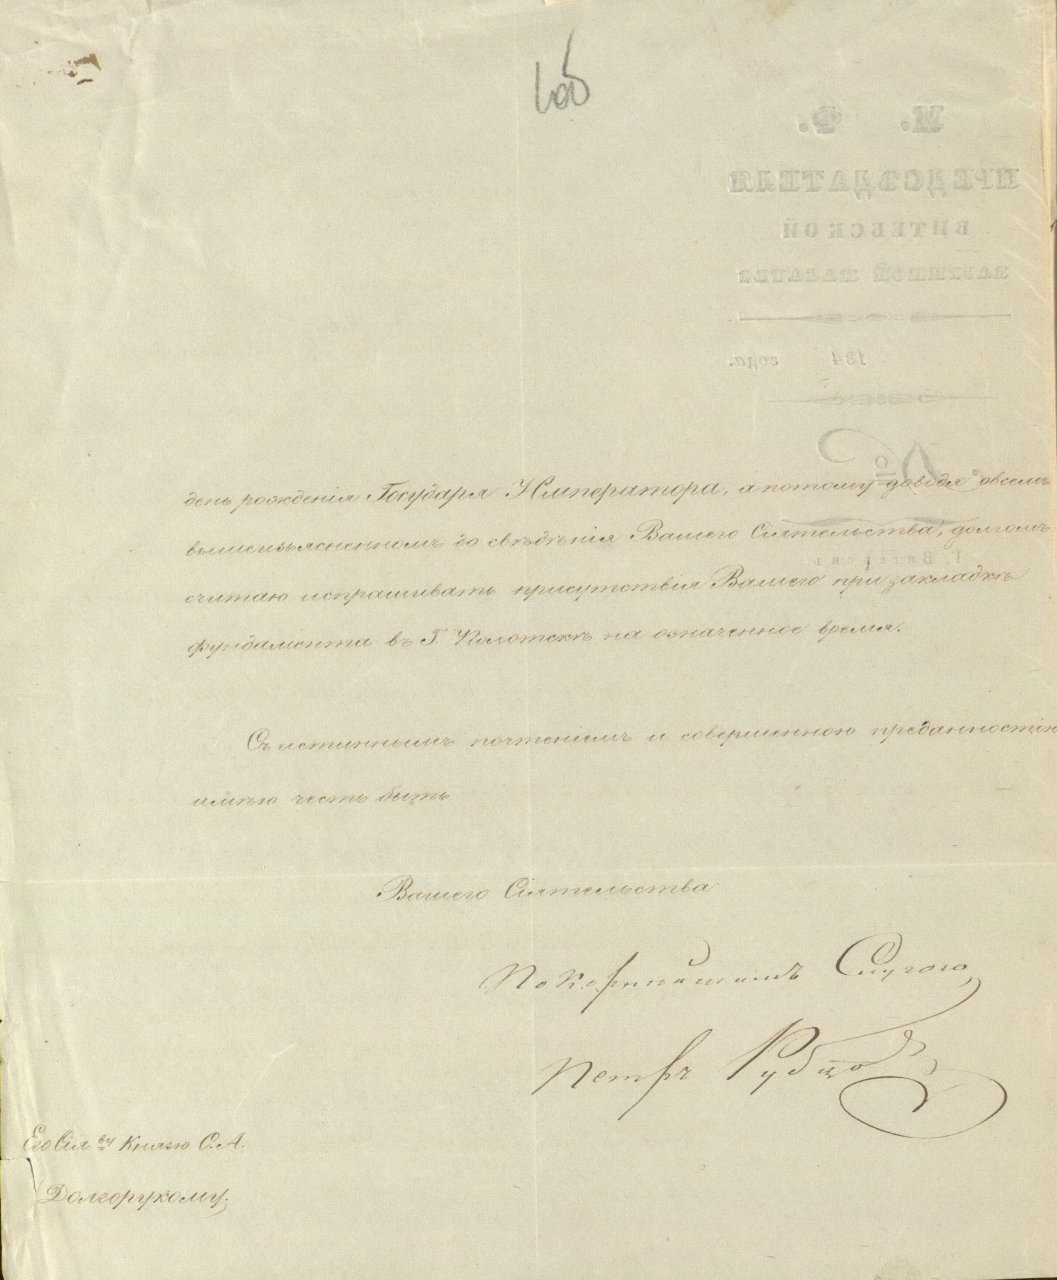 106
М. Ф.
ПРЕДСѢДАТЕЛЯ
ВИТЕБСКОЙ
КАЗЕННОЙ ПАЛАТЫ
184 года.
№
Г. Витебскъ
день рожденія Государя Императора, а потому доводя о всемъ
вышеизъясненномъ до свѣдѣнія Вашего Сіятельства, долгомъ
считаю испрашивать присутствія Вашего при закладкѣ
фундамента въ Г. Полотскѣ на означенное время.
Съ истиннымъ почтеніемъ и совершенною преданностію
имѣю честь быть
Вашего Сіятельства
покорнѣйшимъ Слугою
Петръ Рубцовъ
Его Сія ву Князю С. А.
Долгорукому.